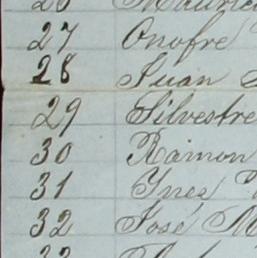 27 Onofre
28 Juan
29 Silvestre
30 Ramon
31 Ynes
32 José M